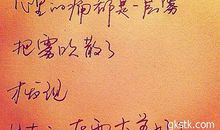 心里的痛都是一层雾
把雾吹散了
才发现
qkstk.com